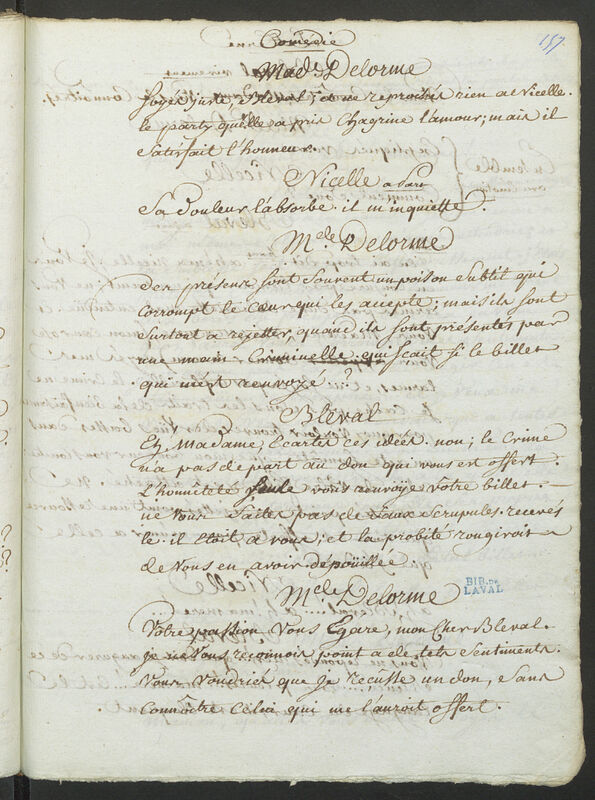 Comédie
157.
Made Delorme
soyés juste, Bleval, et ne reprochés rien a Nicelle.
le party qu'elle a pris chagrine l'amour; mais il
satisfait l'honneur.
Nicelle apart
Sa douleur l'absorbe. il m'inquiette.
Mde Delorme
des présens sont souvent un poison subtil qui
corrompt le coeur qui les accepte; mais ils sont
surtout a rejetter, quand ils sont présentés par
une main Criminelle. qui scait si le billet
qui m'est renvoyé?
Bleval
Eh, Madame, Ecartés ces idées. non; le Crime
n'a pas de part au don qui vous est offert.
l'honnêteté seule vous renvoye votre billet.
ne vous faites pas de faux scrupules. recevés
le. il etoit a vous; et la probité rougiroit
de vous en avoir dépouillée.
Mde Delorme
BIB. DE
LAVAL
Votre passion vous Egare, mon Cher Bleval.
je ne vous reconnois point a de tels sentiments.
Vous voudriés que je recusse un don, sans
connoître celui qui me l'auroit offert.